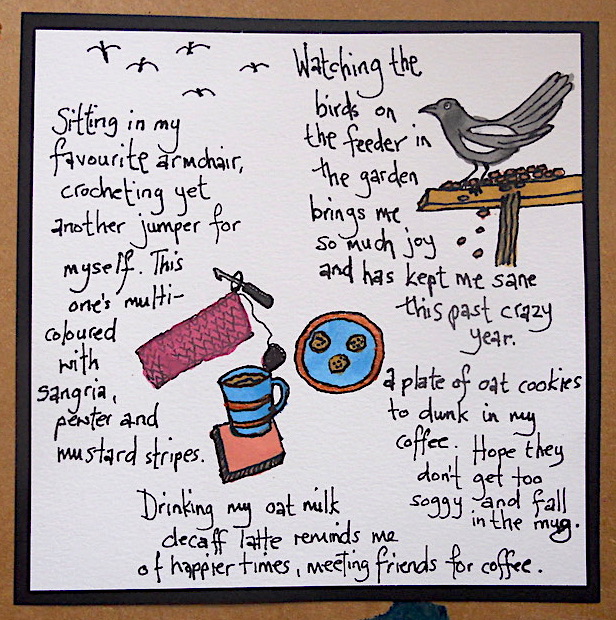 Sitting in my
favourite armchair,
crocheting yet
another jumper for
myself. This
one's multi-
coloured
with
sangria,
pewter and
mustard stripes.
Watching the
birds on
the feeder in
the garden
brings me
so much joy
and has kept me sane
this past crazy
year.
a plate of oat cookies
to dunk in my
coffee. Hope they
don't get too
soggy and fall
in the mug.
Drinking my oat milk
decaff latte reminds me
of happier times, meeting friends for coffee.